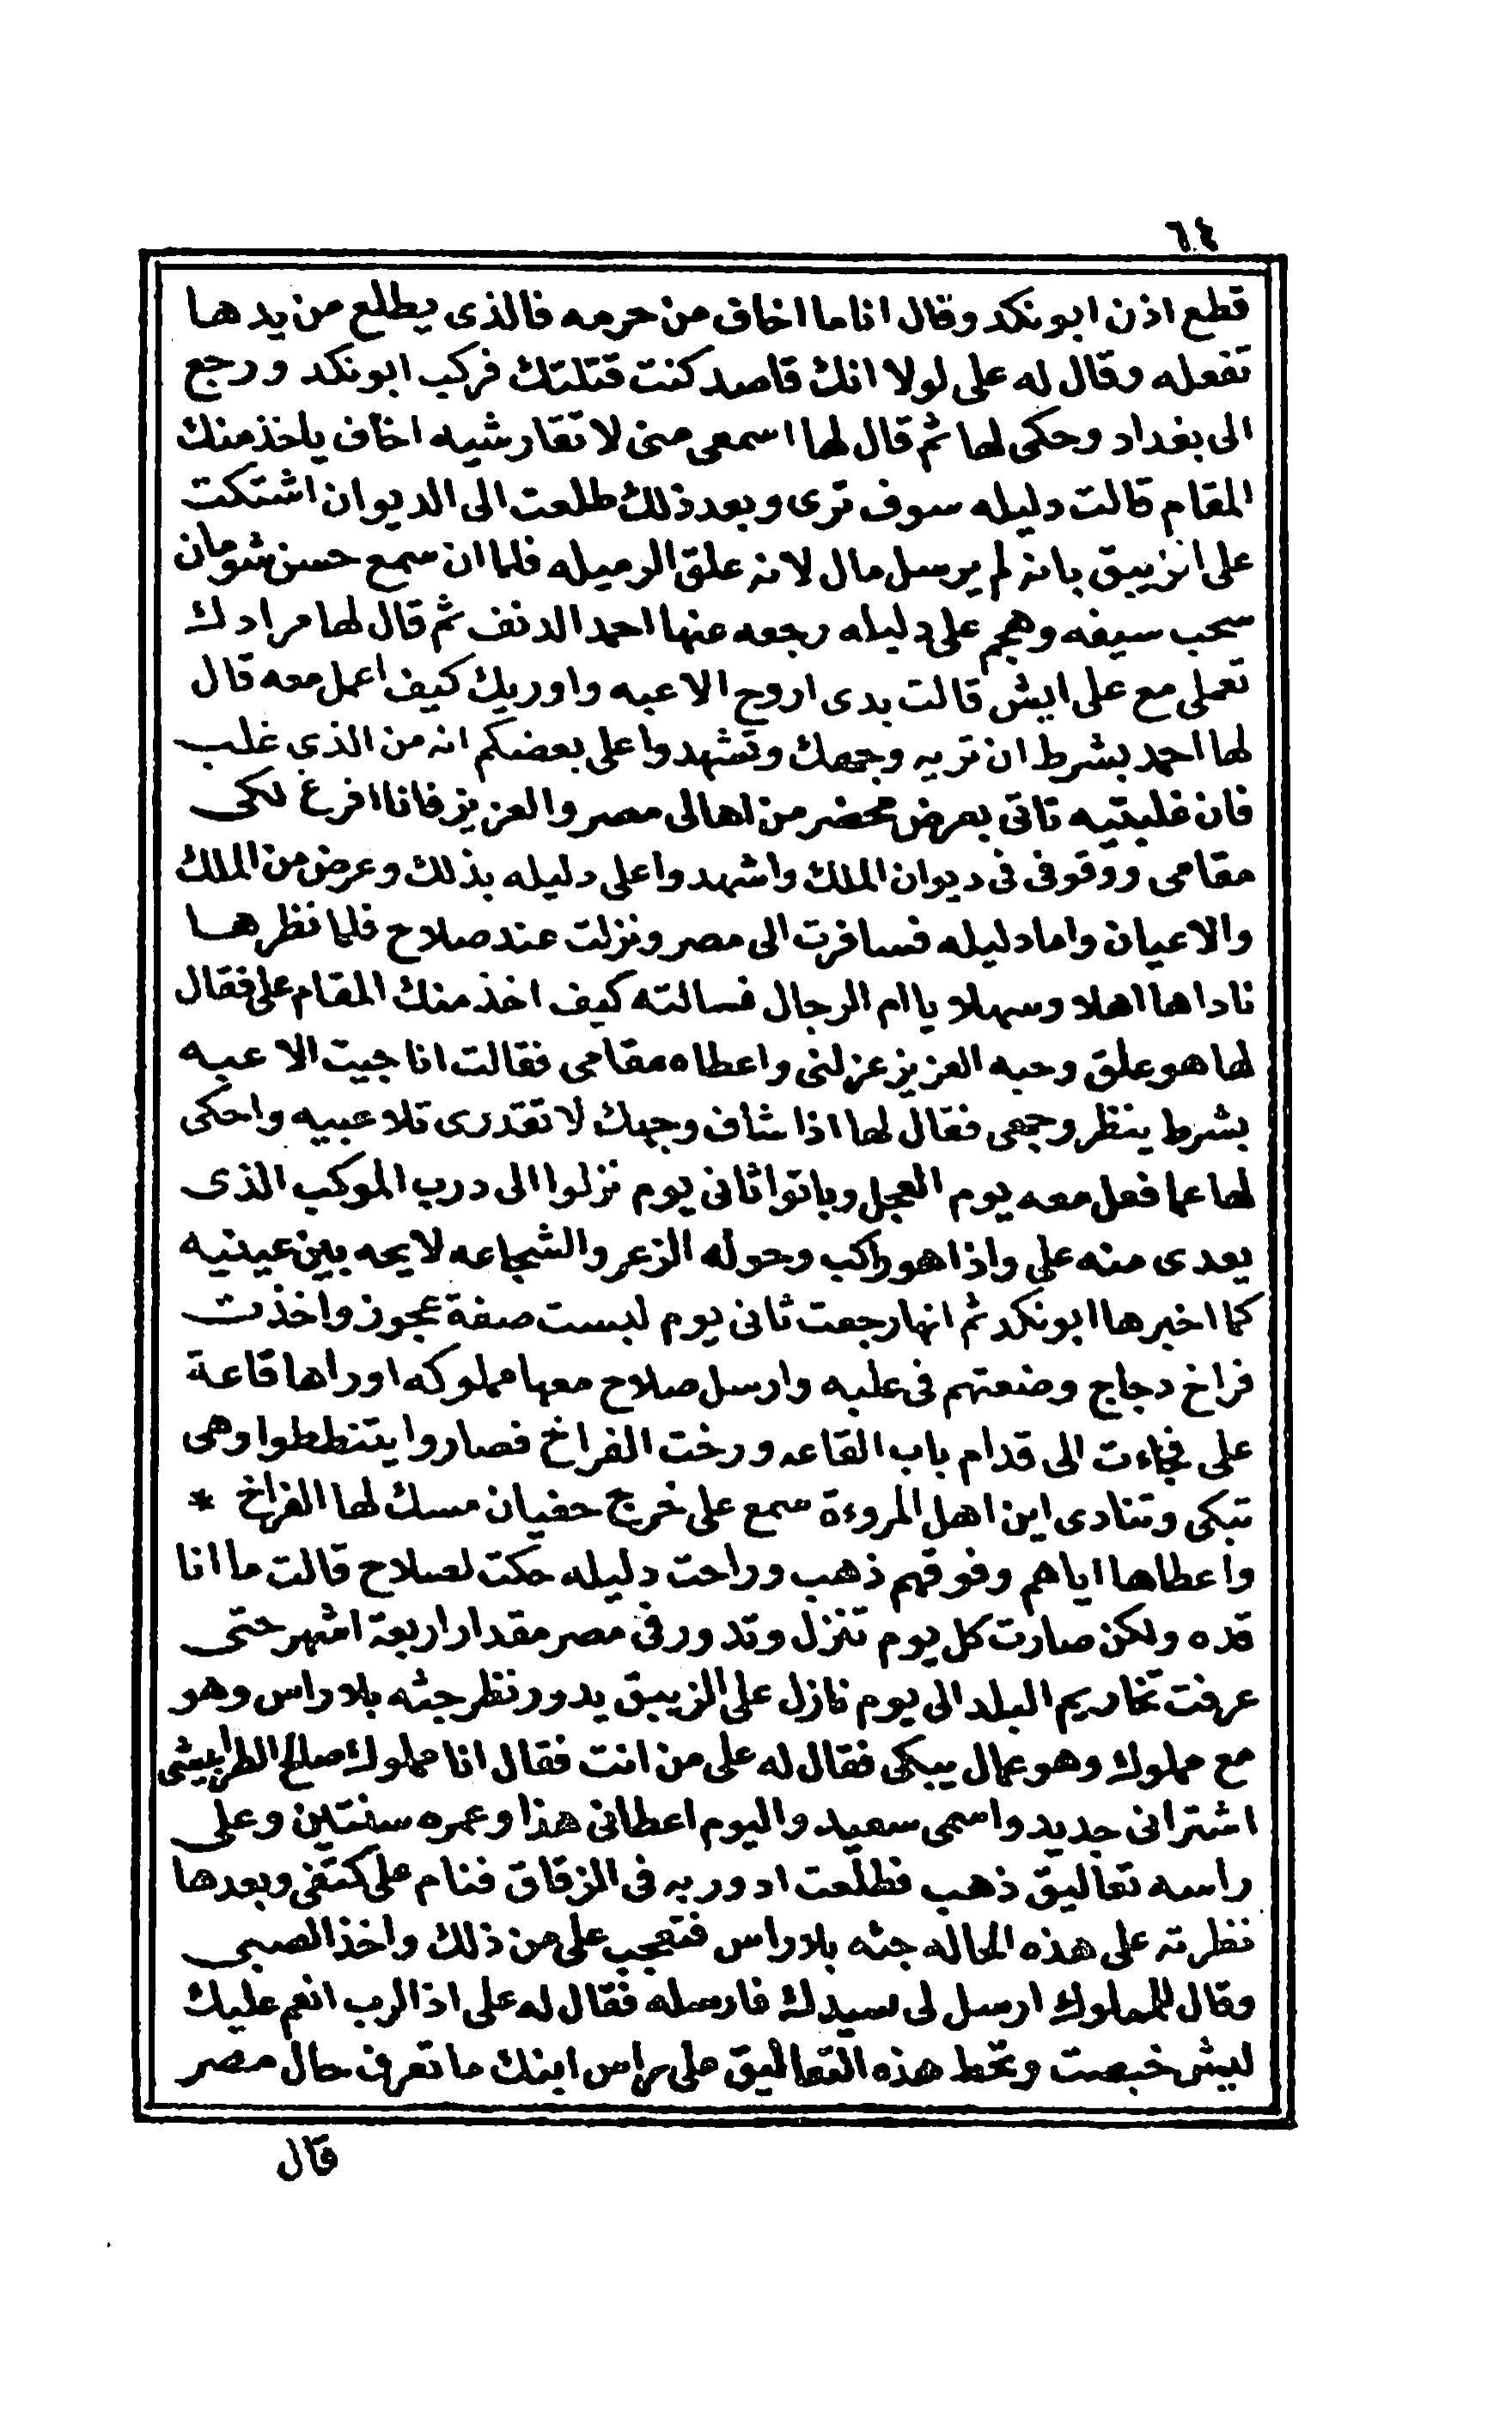 ٦٤
قطع اذن ابو نكد وقال انا ما اخاف من حرمه فالذى يطلع من يدها
تفعله وقال له على لولا انك قاصد كنت قتلتك فركب ابو نكد ورجع
الى بغداد وحكى لها ثم قال لها اسمعى منى لا تقارشيه اخاف ياخذ منك
المقام قالت دليله سوف ترى وبعد ذلك طلعت الى الديوان اشتكت
على الزيبق بانه لم يرسل مال لانه علق الرميله فلما ان سمع حسن شومان
سحب سيفه وهجم على دليله رجعه عنها احمد الدنف ثم قال لها مرادك
تعملى مع على ايش قالت بدى اروح الاعبه واوريك كيف اعمل معه قال
لها احمد بشرط ان تريه وجهك وتشهدوا على بعضكم انه من الذى غلب
فان غلبتيه تاتى بعرض محضر من اهالى مصر والعزيز فانا افرغ لكى
مقامى ووقوفى فى ديوان الملك واشهدوا على دليله بذلك وعرض من الملك
والاعيان واما دليله فسافرت الى مصر ونزلت عند صلاح فلما نظرها
ناداها اهلا وسهلا يا ام الرجال فسالته كيف اخذ منك المقام على فقال
لها هو علق وحبه العزيز عزلنى واعطاه مقامى فقالت انا جيت الاعبه
بشرط ينظر وجهى فقال لها اذا شاف وجهك لا تقدرى تلاعبيه واحكى
لها عما فعل معه يوم العجل وباتوا ثانى يوم نزلوا الى درب الموكب الذى
يعدى منه على واذا هو راكب وحوله الزعر والشجاعه لايحه بين عينيه
كما اخبرها ابو نكد ثم انها رجعت ثانى يوم لبست صفة عجوز واخذت
فراخ دجاج وضعتهم فى علبه وارسل صلاح معها مملوكه اوراها قاعة
على فجاءت الى قدام باب القاعه ورخت الفراخ فصاروا يتنططوا وهى
تبكى وتنادى اين اهل المروءة سمع على خرج حفيان مسك لها الفراخ *
واعطاها اياهم وفوقهم ذهب وراحت دليله حكت لصلاح قالت ما انا
قده ولكن صارت كل يوم تنزل وتدور فى مصر مقدار اربعة اشهر حتى
عرفت تخاريم البلد الى يوم نازل على الزيبق يدور نظر جثه بلا راس وهو
مع مملوك وهو عمال يبكى فقال له على من انت فقال انا مملوك صالح الطرابيشى
اشترانى جديد واسمى سعيد واليوم اعطانى هذا وعمره سنتين وعلى
راسه تعاليق ذهب فطلعت ادور به فى الزقاق فنام على كتفى وبعدها
نظرته على هذه الحاله جثه بلا راس فتعجب على من ذلك واخذ الصبى
وقال للمملوك ارسل لى سيدك فارسله فقال له على اذا الرب انعم عليك
ليش خبصت وتحط هذه التعاليق على راس ابنك ما تعرف حال مصر
قال